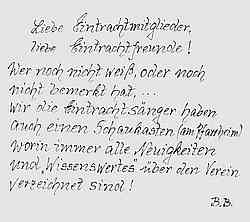 Liebe Eintrachtmitglieder,
liebe Eintrachtfreunde!
Wer noch nicht weiß, oder noch
nicht bemerkt hat, ...
Wir die Eintracht-Sänger haben
auch einen Schaukasten (am Pfarrheim)
worin immer alle Neuigkeiten
und „Wissenswertes" über den Verein
verzeichnet sind!
B.B.